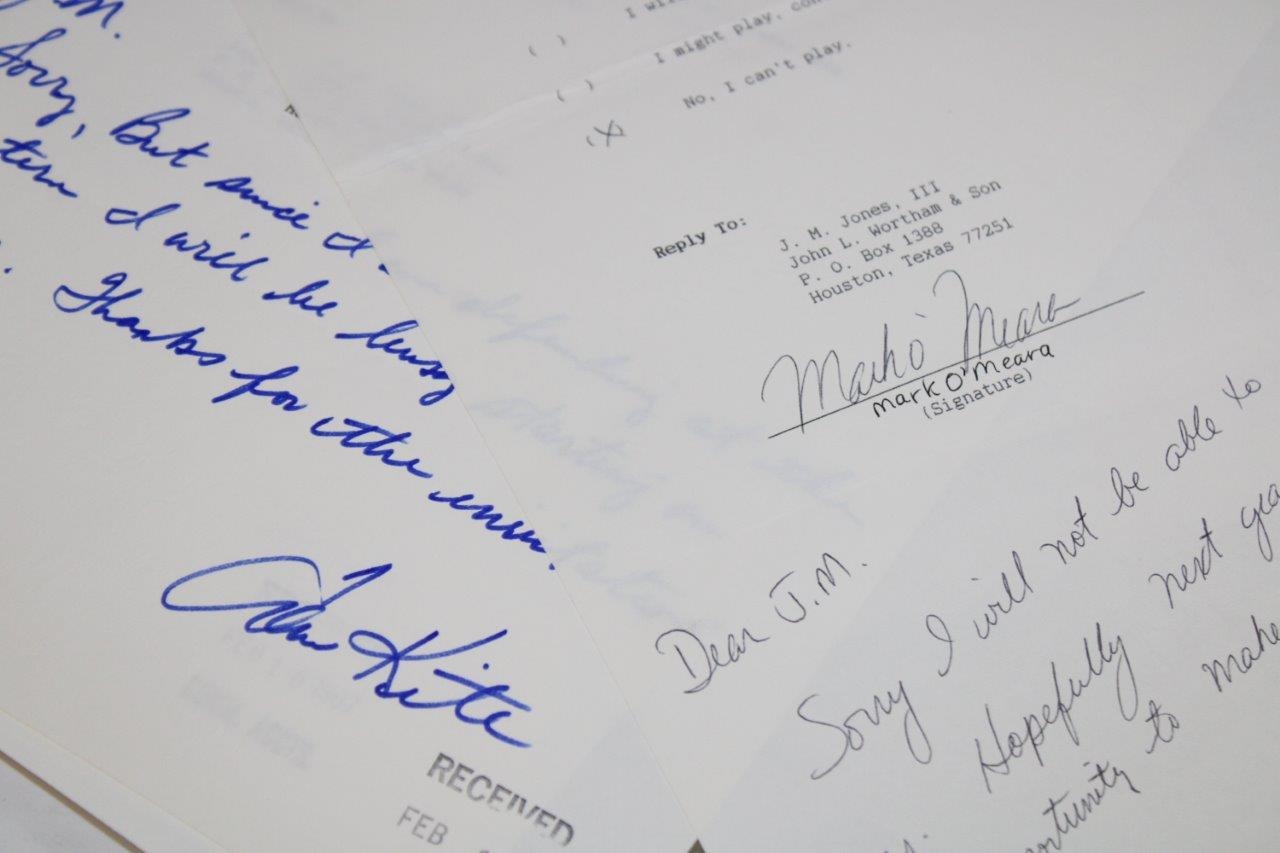 M.
Sorry, But since
I will be busy
Thanks for the
Tom Kite
RECEIVED
FEB
( )
( ) I might play,
(X) No, I can't play.
Reply To: J. M. Jones, III
John L. Wortham & Son
P. O. Box 1388
Houston, Texas 77251
Mark O'Meara
Mark O'Meara
(Signature)
Dear J.M.
Sorry I will not be able to
Hopefully next
to make